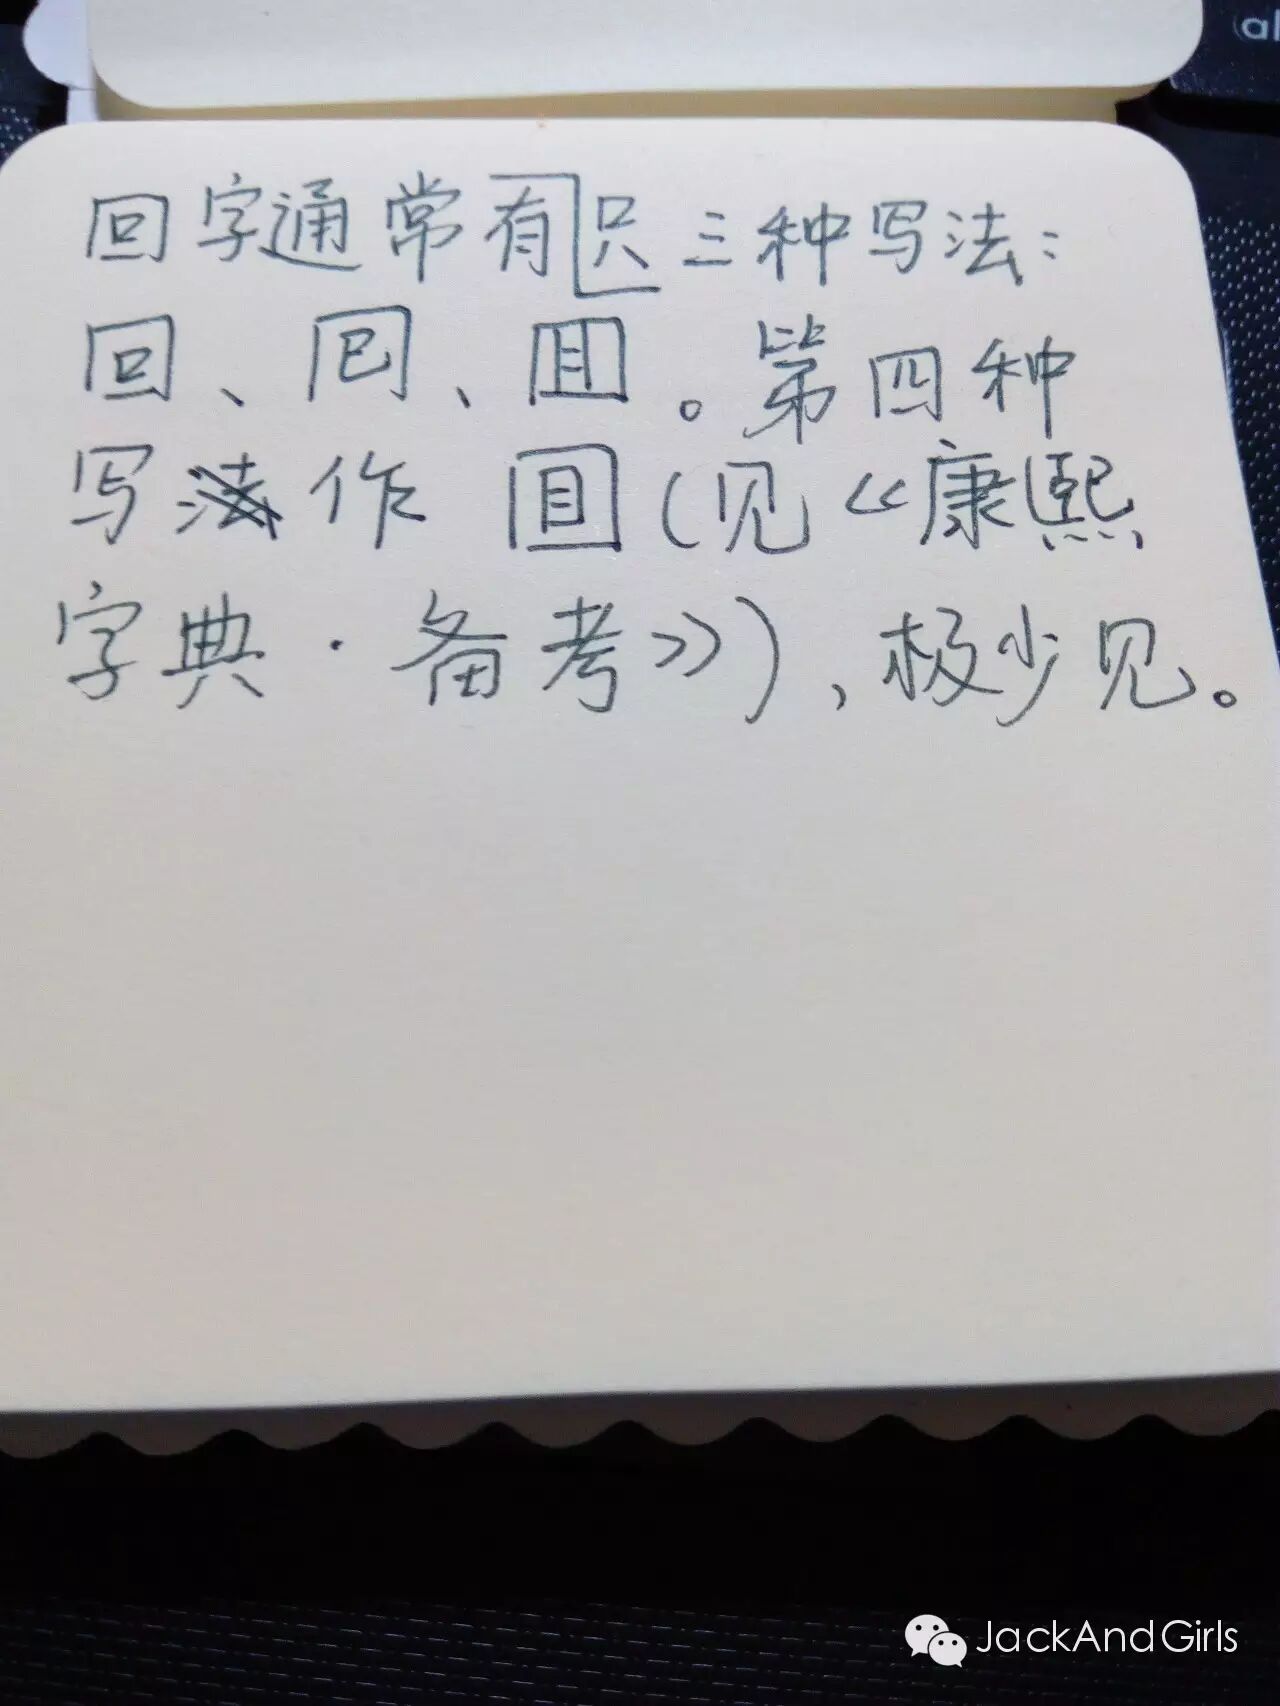 al
回字通常有只三种写法：
回、囘、囬。第四种
写法作囬（见《康熙
字典·备考》），极少见。
JackAndGirls